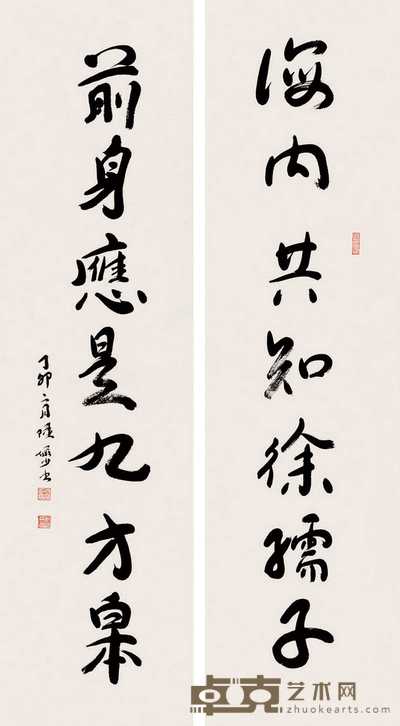 海内共知徐孺子
前身應是九方皋
丁卯三月陸儼少書
卓克艺术网
zhuokearts.com